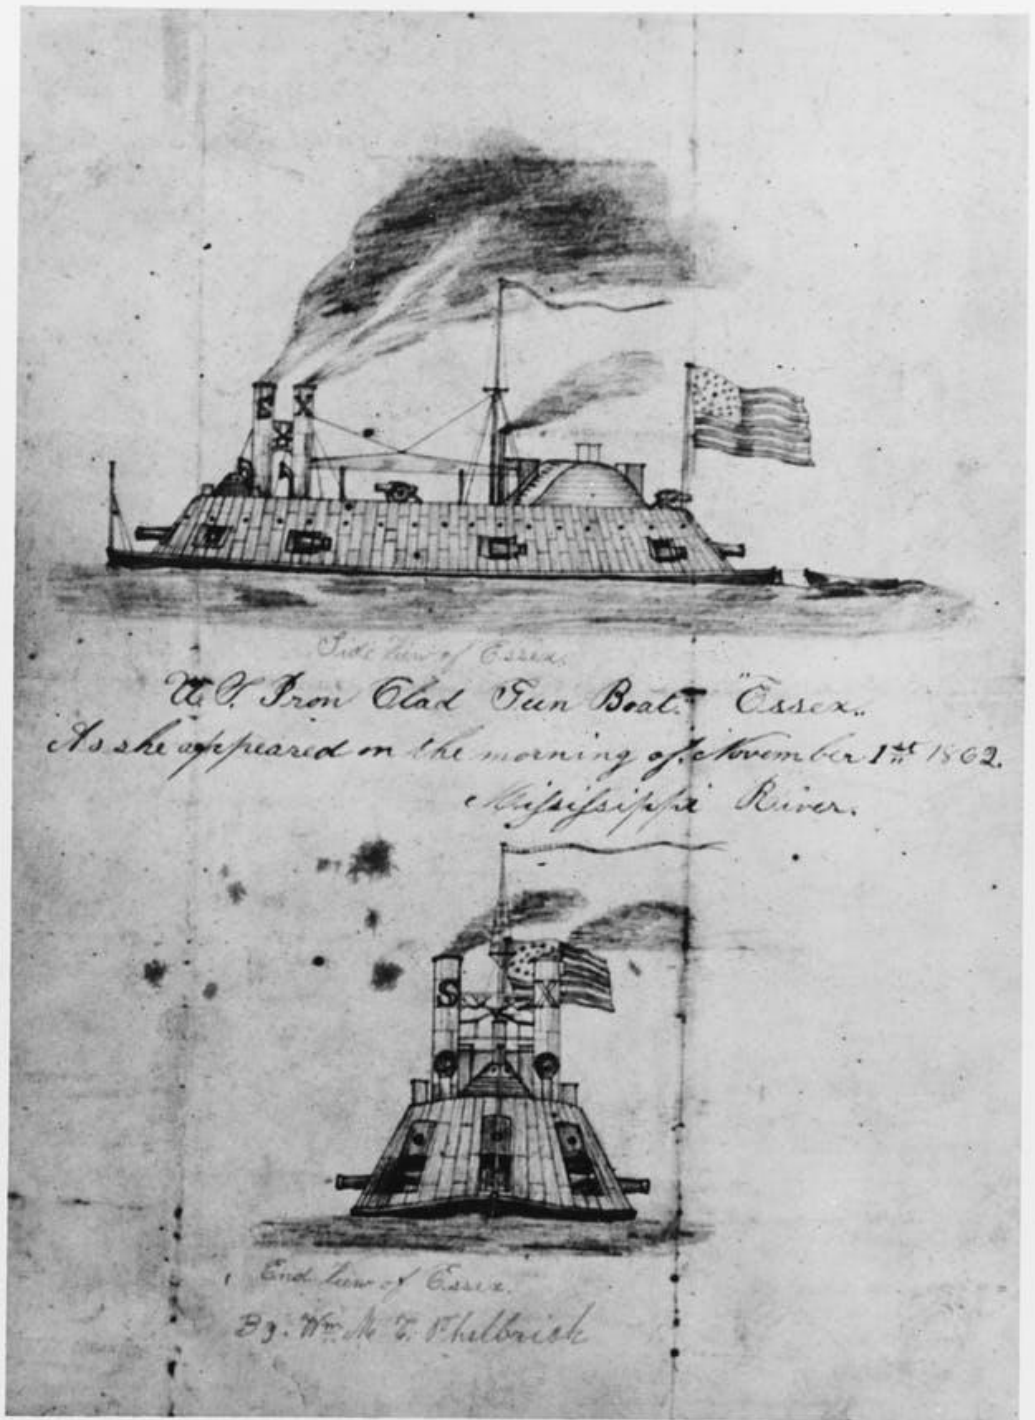 E X
Side View of Essex.
U.S. Iron Clad Gun Boat. "Essex"
As she appeared on the morning of November 1st 1862.
Mississippi River.
S X
End View of Essex.
By. Wm. M. C. Philbrick